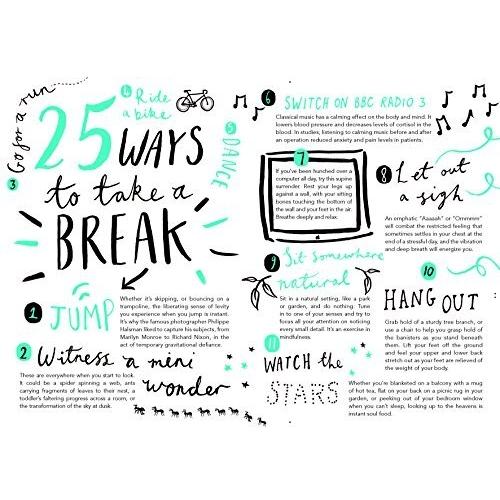 Go for a run
3
25 WAYS
to take a
BREAK
4 Ride
a bike
5 DANCE
1 JUMP
Whether it's skipping, or bouncing on a
trampoline, the liberating sense of levity
you experience when you jump is instant.
It's why the famous photographer Philippe
Halsman liked to capture his subjects, from
Marilyn Monroe to Richard Nixon, in the
act of temporary gravitational defiance.
2 Witness a mini
wonder
These are everywhere when you start to look.
It could be a spider spinning a web, ants
carrying fragments of leaves to their nest, a
toddler's faltering progress across a room, or
the transformation of the sky at dusk.
6 SWITCH ON BBC RADIO 3
Classical music has a calming effect on the body and mind. It
lowers blood pressure and decreases levels of cortisol in the
blood. In studies, listening to calming music before and after
an operation reduced anxiety and pain levels in patients.
7
If you've been hunched over a
computer all day, try this supine
surrender. Rest your legs up
against a wall, with your sitting
bones touching the bottom of
the wall and your feet in the air.
Breathe deeply and relax.
8 Let out
a sigh
An emphatic "Aaaaah" or "Ommmm"
will combat the restricted feeling that
sometimes settles in your chest at the
end of a stressful day, and the vibration
and deep breath will energize you.
9 Sit somewhere
natural
Sit in a natural setting, like a park
or garden, and do nothing. Tune
in to one of your senses and try to
focus all your attention on noticing
every small detail. It's an exercise in
mindfulness.
10
HANG OUT
Grab hold of a sturdy tree branch, or
use a chair to help you grasp hold of
the banisters as you stand beneath
them. Lift your feet off the ground
and feel your upper and lower back
stretch out as your feet are relieved of
the weight of your body.
11
WATCH the
STARS
Whether you're blanketed on a balcony with a mug
of hot tea, flat on your back on a picnic rug in your
garden, or peeking out of your bedroom window
when you can't sleep, looking up to the heavens is
instant soul food.